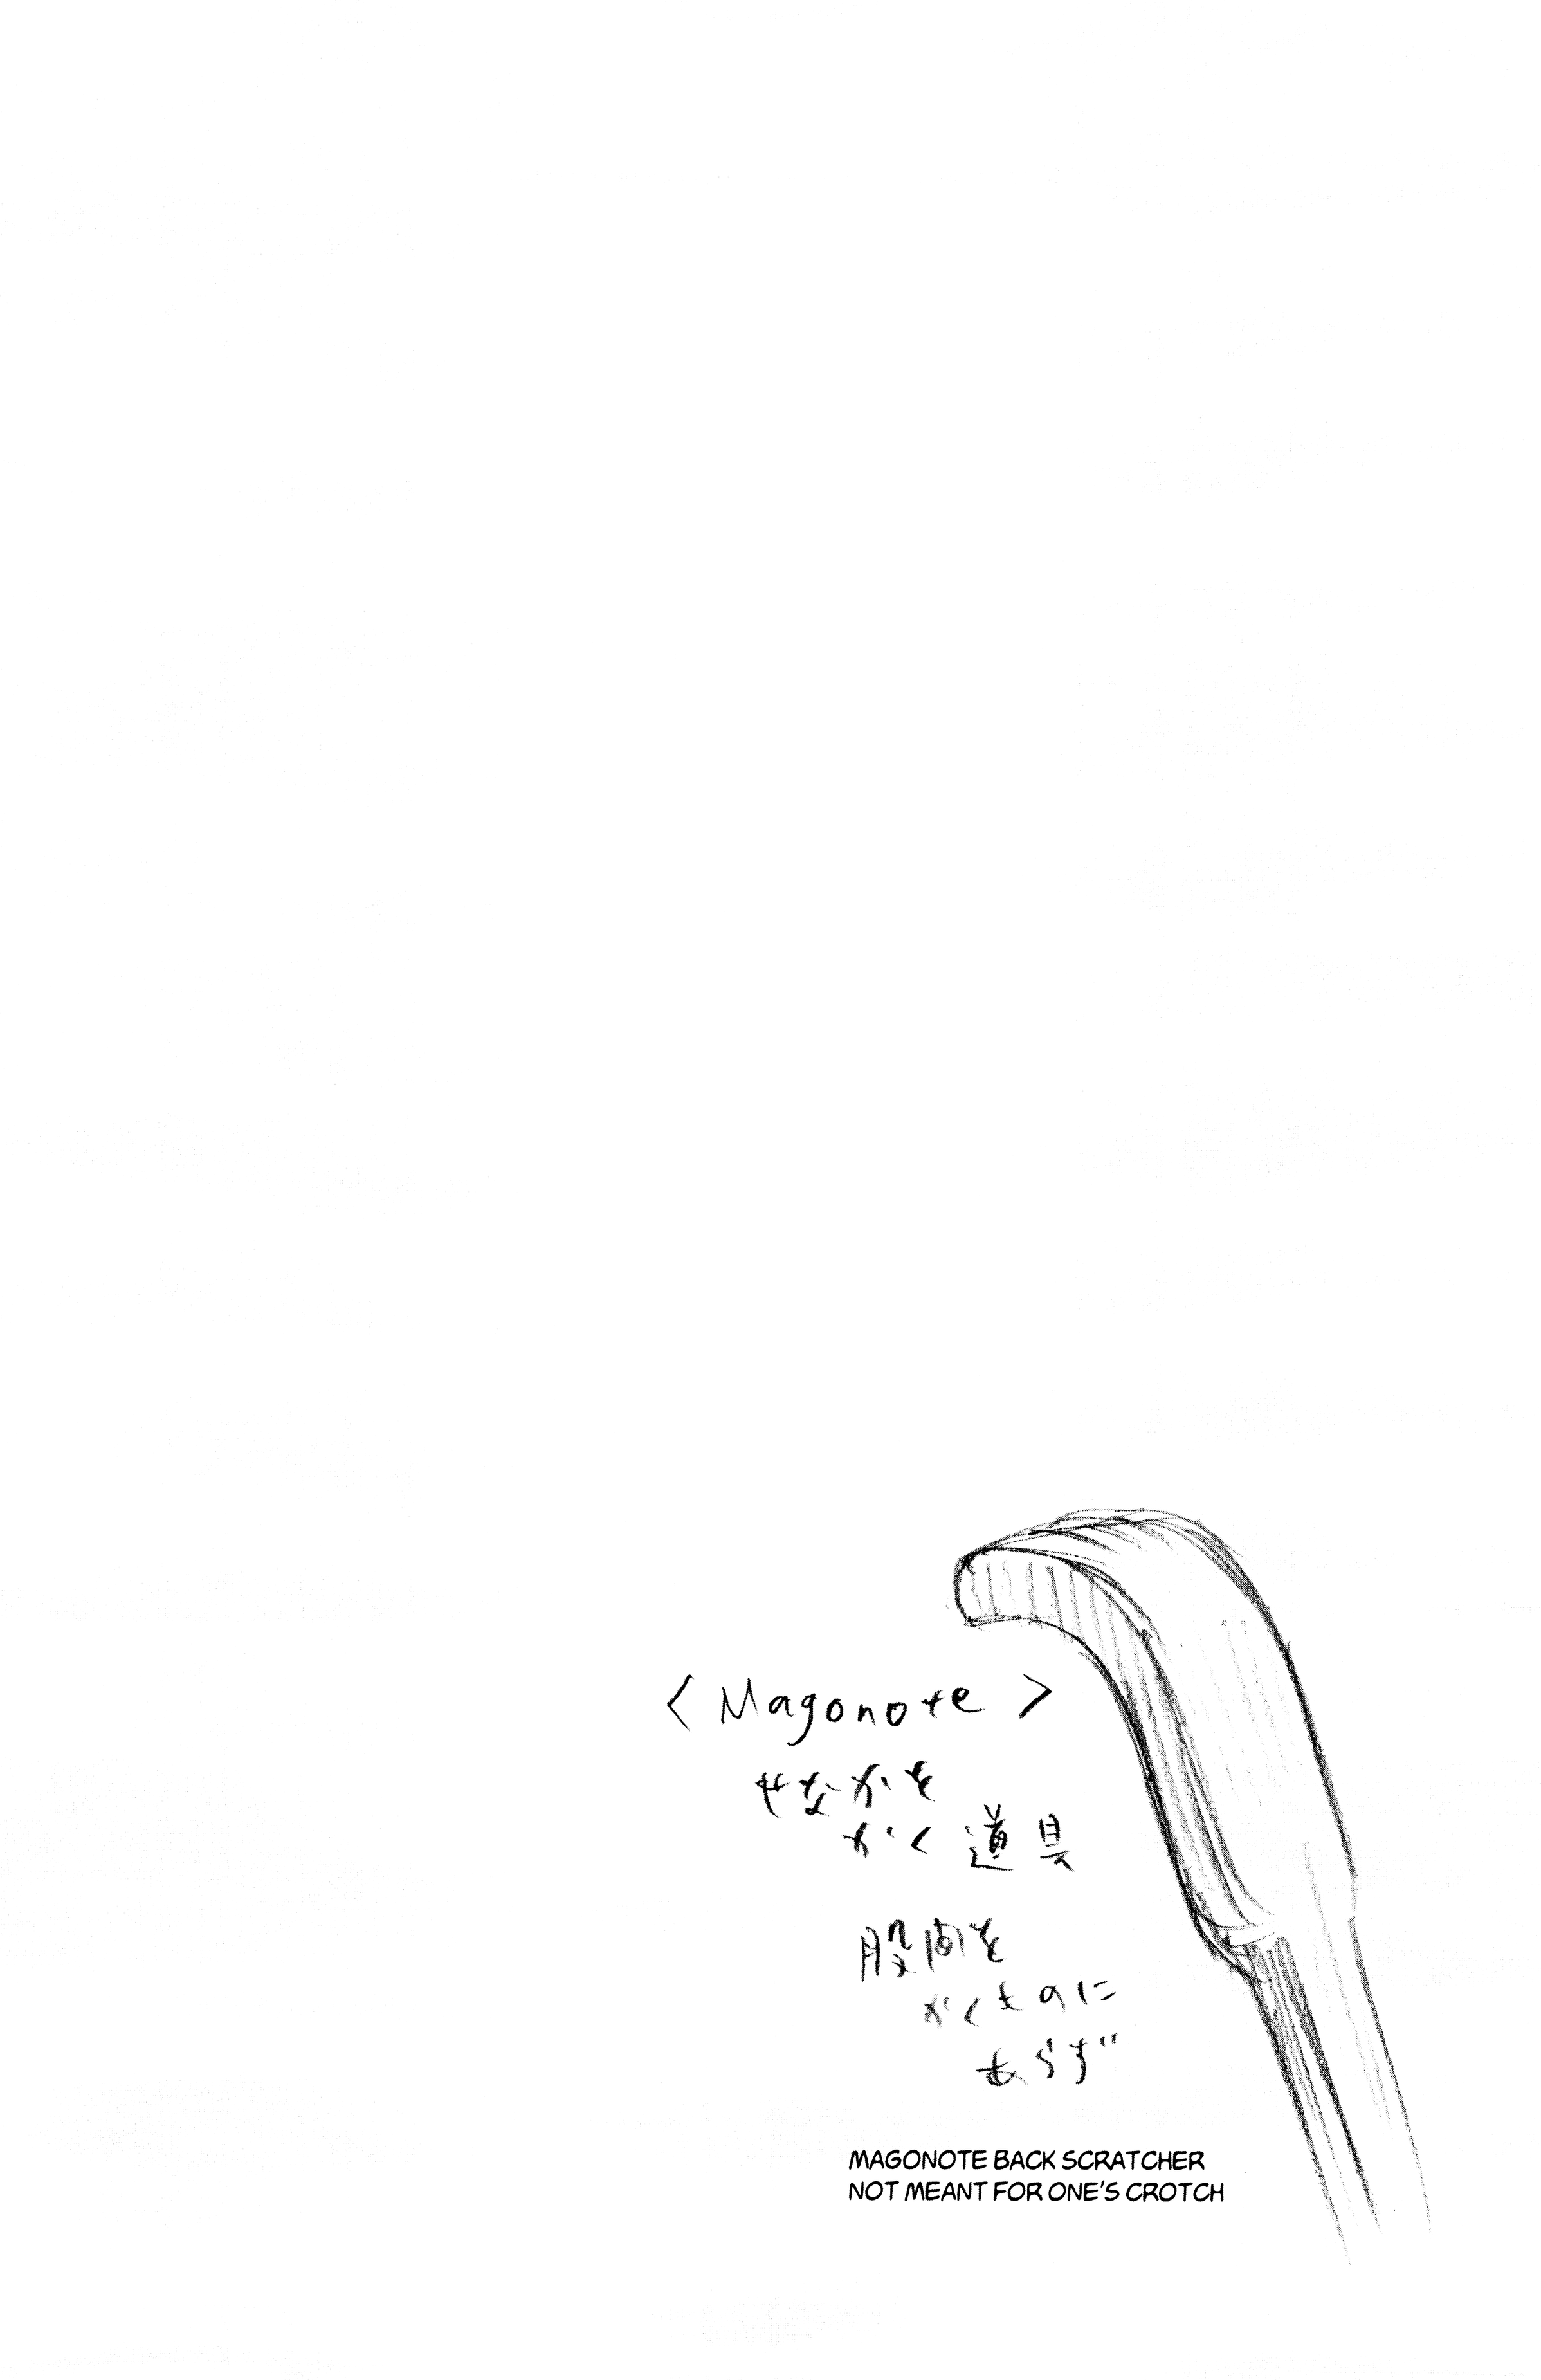 < Magonote >
せなかを
かく道具
股間を
かくものに
あらず
MAGONOTE BACK SCRATCHER
NOT MEANT FOR ONE'S CROTCH